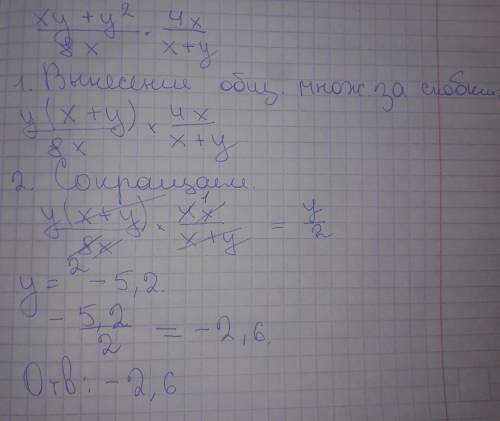 (xy + y²)/(8x) · 4x/(x+y)
1. Вынесение общ. множ. за скобки:
y(x+y)/(8x) × 4x/(x+y)
2. Сокращаем.
y(x+y)/(8x) × 4x/(x+y) = y/2
2 1
y = -5,2.
-5,2/2 = -2,6.
Отв: -2,6